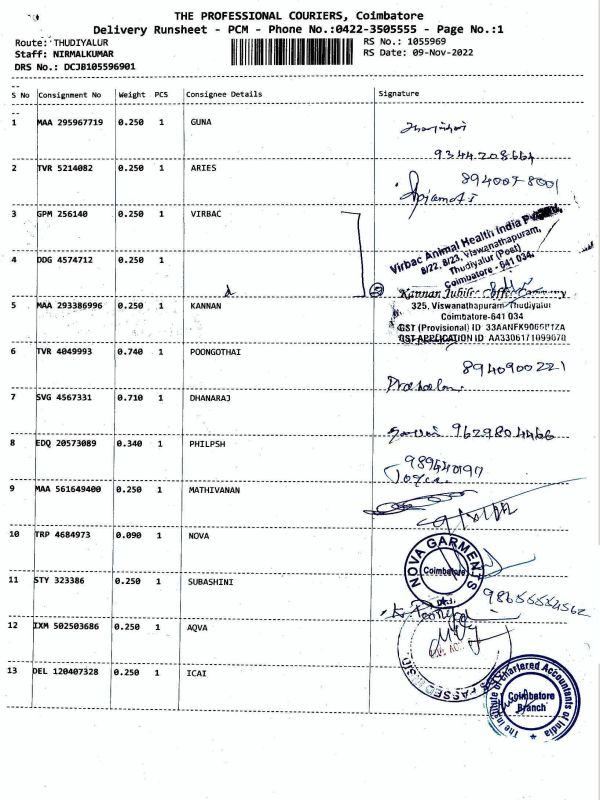 THE PROFESSIONAL COURIERS, Coimbatore
Delivery Runsheet - PCM - Phone No.:0422-3505555 - Page No.:1
Route: THUDIYALUR RS No.: 1055969
Staff: NIRMALKUMAR RS Date: 09-Nov-2022
DRS No.: DCJB105596901
S No Consignment No Weight PCS Consignee Details Signature
1 MAA 295967719 0.250 1 GUNA
9344208664
2 TVR 5214082 0.250 1 ARIES
3 GPM 256140 0.250 1 VIRBAC
Virbac Animal Health India
8/22, 8/23, Viswanathapuram,
Thudiyalur (Post)
Coimbatore - 641 034.
4 DDG 4574712 0.250 1
Kannan Jubilee Coffee Company
5 MAA 293386996 0.250 1 KANNAN 325, Viswanathapuram Thudiyalur
Coimbatore-641 034
GST (Provisional) ID
GST APPLICATION ID
6 TVR 4049993 0.740 1 POONGOTHAI 8940900221
7 SVG 4567331 0.710 1 DHANARAJ
9629804466
8 EDQ 20573089 0.340 1 PHILPSH
9 MAA 561649400 0.250 1 MATHIVANAN
10 TRP 4684973 0.090 1 NOVA
NOVA GARMENTS
Coimbatore
11 STY 323386 0.250 1 SUBASHINI
12 IXM 502503686 0.250 1 AQVA
13 DEL 120407328 0.250 1 ICAI
PASSED
The Institute of Chartered Accountants of India
Coimbatore
Branch